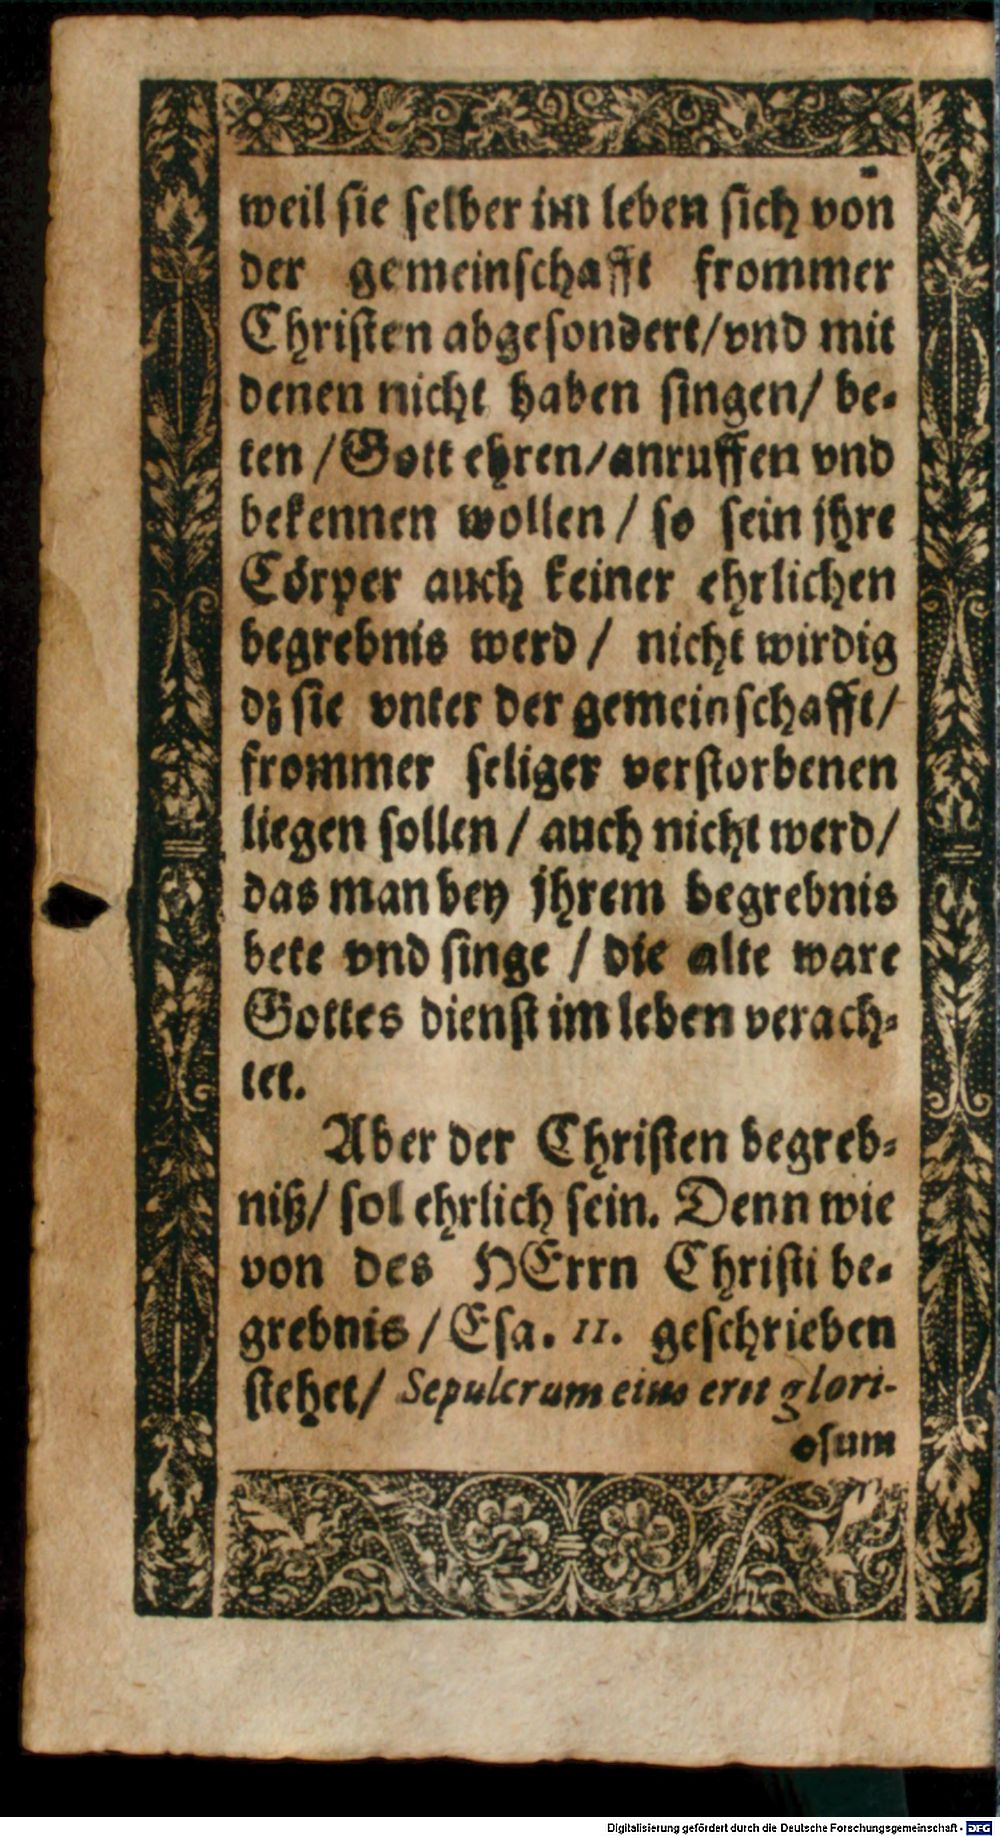 weil sie selber im leben sich von
der gemeinschafft frommer
Christen abgesondert/vnd mit
denen nicht haben singen/ be-
ten /Gott ehren/anruffen vnd
bekennen wollen / so sein jhre
Cörper auch keiner ehrlichen
begrebnis werd / nicht wirdig
dz sie vnter der gemeinschafft/
frommer seliger verstorbenen
liegen sollen / auch nicht werd/
das man bey jhrem begrebnis
bete vnd singe / die alte ware
Gottes dienst im leben verach-
tet.
Aber der Christen begreb-
niß/ sol ehrlich sein. Denn wie
von des HErrn Christi be-
grebnis /Esa. 11. geschrieben
stehet/ Sepulcrum eius erit glori-
osum
Digitalisierung gefördert durch die Deutsche Forschungsgemeinschaft - DFG